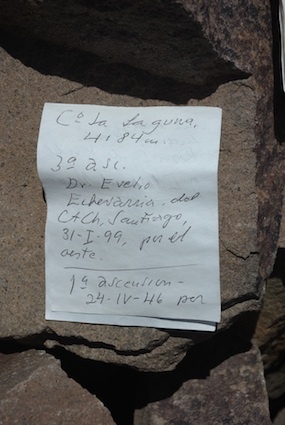 Cº La Laguna,
4184m.
3ª asc.
Dr. Evelio
Echevarría, del
CACh, Santiago,
31-I-99, por el
oeste.
1ª ascensión-
24-IV-46 por